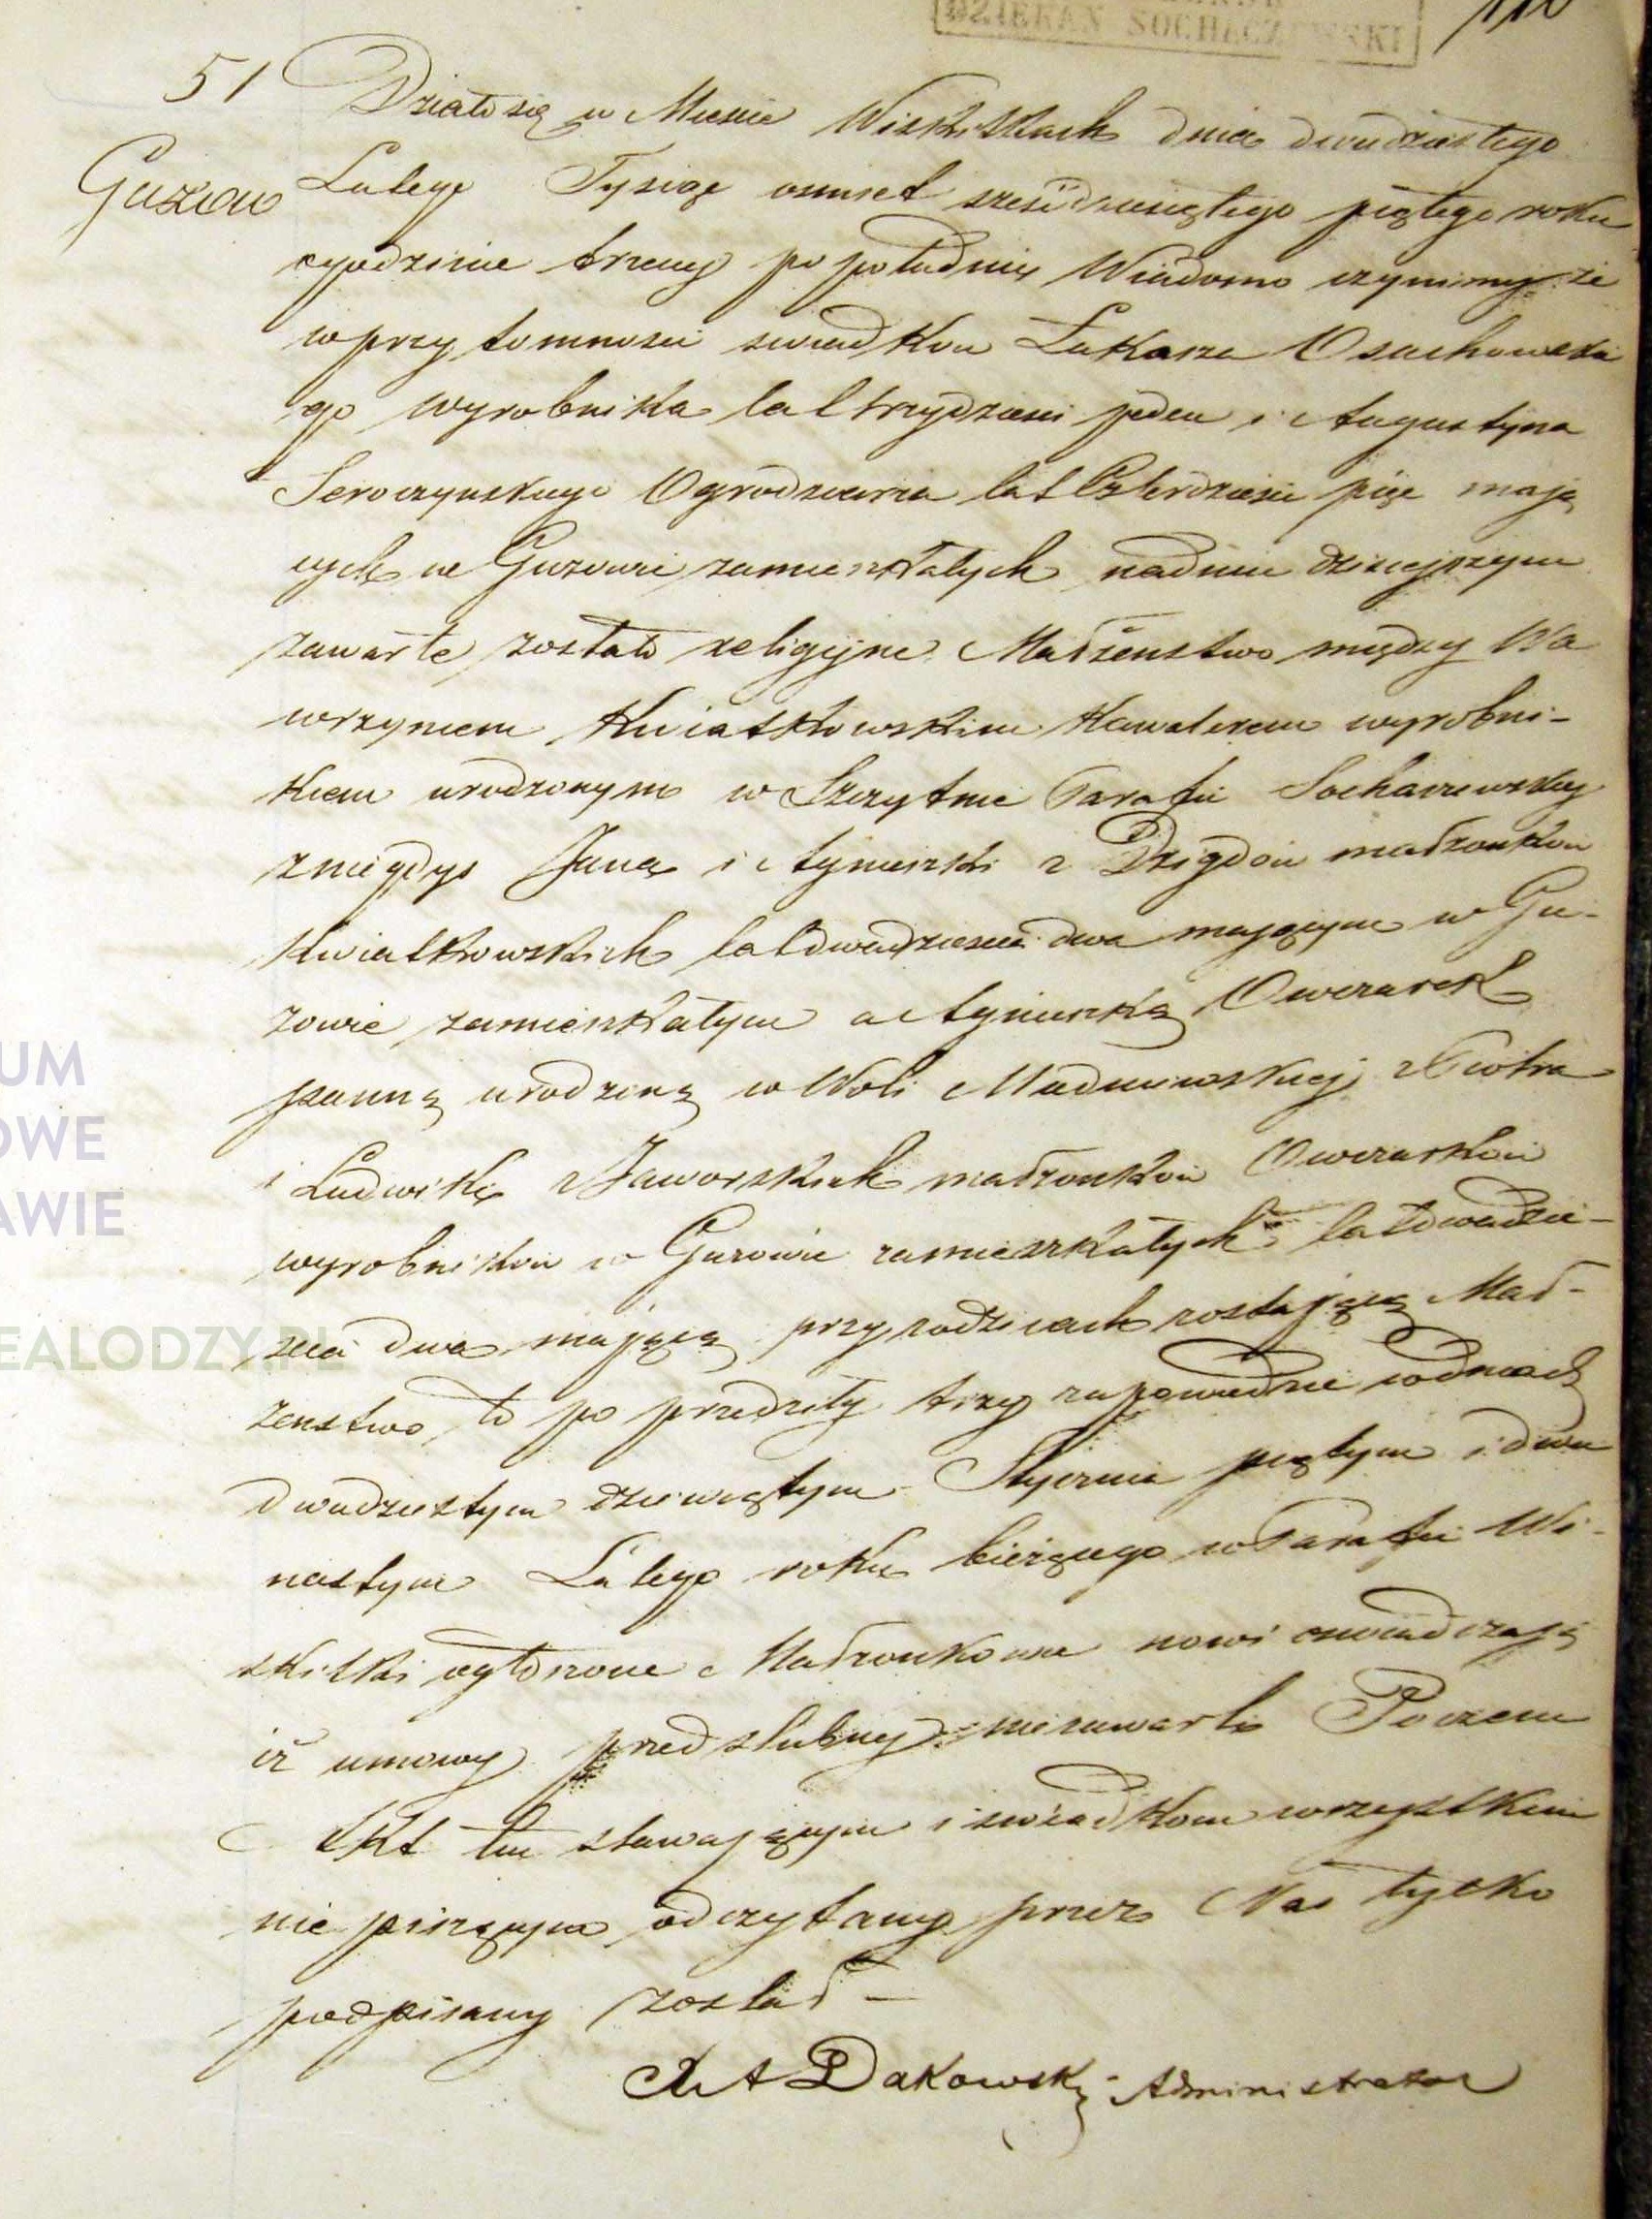 DZIEKAN SOCHACZEWSKI
110
51
Guzow
Działo się w Miescie Wiskitkach dnia dwudziestego
Lutego Tysiąc osmset sześćdziesiątego piątego roku
o godzinie trzeciej po południu Wiadomo czynimy że
w przytomnosci swiadkow Łukasza Osuchowski
go wyrobnika lat trzydziesci jeden i Augustyna
Seroczynskiego Ogrodniarza lat czterdziesci pięc mają
cych w Guzowie zamieszkałych na dniu dzisiejszym
zawarte zostało religijne Małżenstwo między Wa
wrzyncem Kwiatkowskim Kawalerem wyrobni-
kiem urodzonym w Szczytnie Parafii Sochaczewskiej
z niegdys Jana i Agnieszki z Dzigdow małżonkow
Kwiatkowskich lat dwadziescia dwa mającym w Gu-
zowie zamieszkałym a Agnieszką Owczarek
panną urodzoną w Woli Miedniewskiej z Piotra
i Ludwiki z Jaworskich małżonkow Owczarkow
wyrobnikow w Guzowie zamieszkałych lat dwadzie-
scia dwa mającą przy rodzicach zostającą Mał-
żenstwo to poprzedziły trzy zapowiedzie w dniach
dwudziestym dziewiątym Stycznia piątym i dwu
nastym Lutego roku bieżącego w Parafii Wi-
skitki ogłoszone Małżonkowie nowi oswiadczają
iż umowy przedslubnej nie zawarli Poczem
Akt ten stawającym i swiadkom wszystkim
nie piszącym odczytany przez Nas tylko
podpisany został –
X A Dakowski Administrator
UM
OWE
AWIE
EALODZY.PL